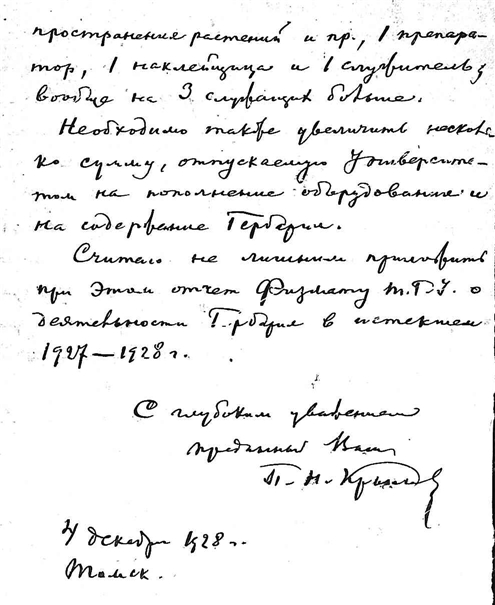 пространения растений и пр., 1 препара-
тор, 1 наклейщица и 1 служитель;
вообще на 3 служащих больше.
Необходимо также увеличить несколь
ко сумму, отпускаемую Университе-
том на пополнение оборудования и
на содержание Гербария.
Считаю не лишним приложить
при этом отчет Физмату Т.Г.У. о
деятельности Гербария в истекшем
1927—1928 г.
С глубоким уважением
преданный Вам
П. Н. Крылов
4 декабря 1928 г.
Томск.